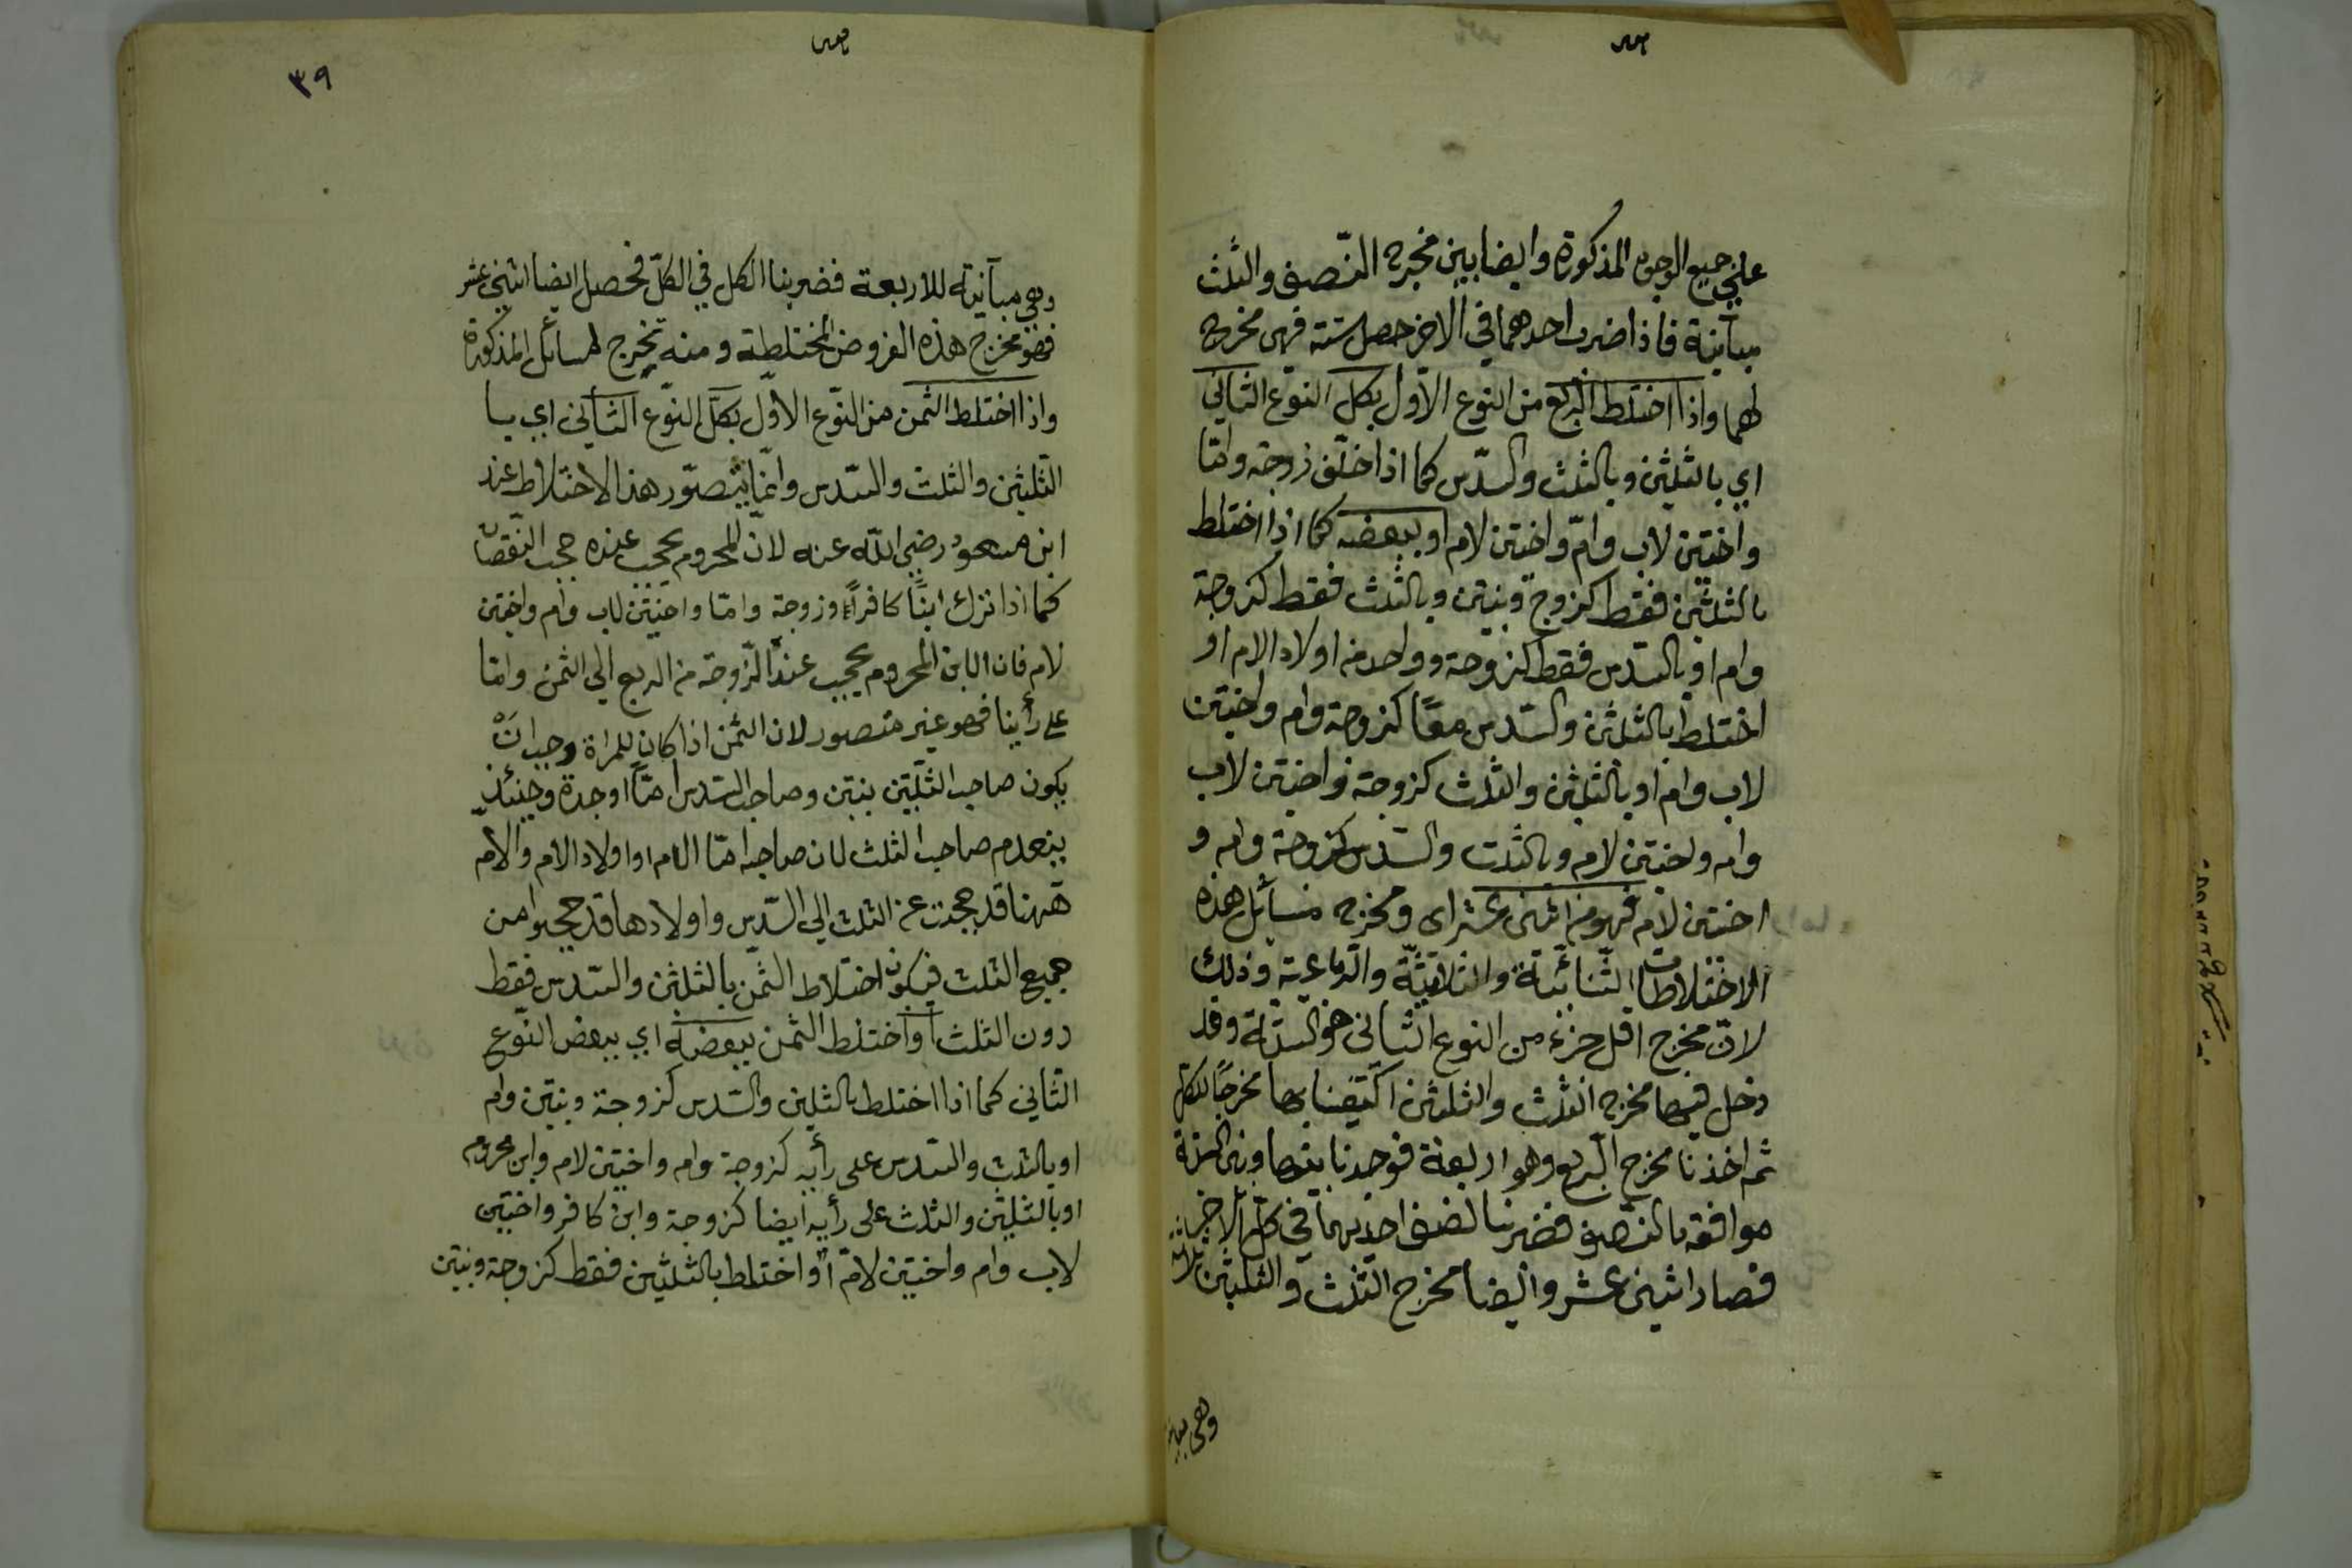 على جميع الوجوه المذكورة وايضا بين مخرج النّصف والثلث
مباينة فاذا ضرب احدهما في الاخر حصل ستة فهى مخرج
لهما واذا اختلط الربع من النوع الاول بكل النوع الثاني
اي بالثلثين وبالثلث والسّدس كما اذا خلّف زوجة وامّا
واختين لاب وامّ واختين لام او ببعضه كما اذا اختلط
بالثلثين فقط كزوج وبنتين وبالثلث فقط كزوجة
وام او بالسّدس فقط كزوجة وواحد من اولاد الام او
اختلط بالثلثين والسّدس معًا كزوجة وام واختين
لاب وام او بالثلثين والثلث كزوجة واختين لاب
وام واختين لام وبالثلث والسّدس كزوجة وام و
اختين لام فهو من اثنى عشر اى ومخرج مسائل هذه
الاختلاطات الثنائيّة والثلاثيّة والرّباعيّة وذلك
لانّ مخرج اقل جزء من النوع الثانى هو السّتّة وقد
دخل فيها مخرج الثلث والثلثين اكتفينا بها مخرجًا للكل
ثم اخذنا مخرج الربع وهو اربعة فوجدنا بينها وبين الستة
موافقة بالنّصف فضربنا نصف احديهما في كل الاخر
فصار اثنى عشر وايضا مخرج الثلث والثلثين ثلاثة
وهى مباينة
٣٩
وهي مباينة للاربعة فضربنا الكل في الكلّ فحصل ايضا اثنى عشر
فهو مخرج هذه الفروض المختلطة ومنه تخرج المسائل المذكورة
واذا اختلط الثمن من النّوع الاوّل بكل النّوع الثاني اي با
الثلثين والثلث والسّدس وانّما يتصوّر هذا الاختلاط عند
ابن مسعود رضي اللّه عنه لانّ المحروم يحجب عنده حجب النّقصان
كما اذا ترك ابنًا كافرًا وزوجة وامّا واختين لاب وام واختين
لام فان الابن المحروم يحجب عنده الزّوجة من الربع الى الثمن وامّا
على رأينا فهو غير متصور لان الثمن اذا كان للمراة وجب انْ
يكون صاحب الثلثين بنتين وصاحب السّدس امّا او جدة وحينئذ
ينعدم صاحب الثلث لان صاحبه امّا الام او اولاد الام والامّ
ههنا قد حجبت عن الثلث الي السّدس واولادها قد حجبوا من
جميع الثلث فيكون اختلاط الثّمن بالثلثين والسّدس فقط
دون الثلث او اختلط الثمن ببعضه اي ببعض النّوع
الثاني كما اذا اختلط بالثلثين والسّدس كزوجة وبنتين وام
او بالثلث والسّدس على رأيه كزوجة وام واختين لام وابن محروم
او بالثلثين والثلث على رأيه ايضا كزوجة وابن كافر واختين
لاب وام واختين لامّ او اختلط بالثلثين فقط كزوجة وبنتين